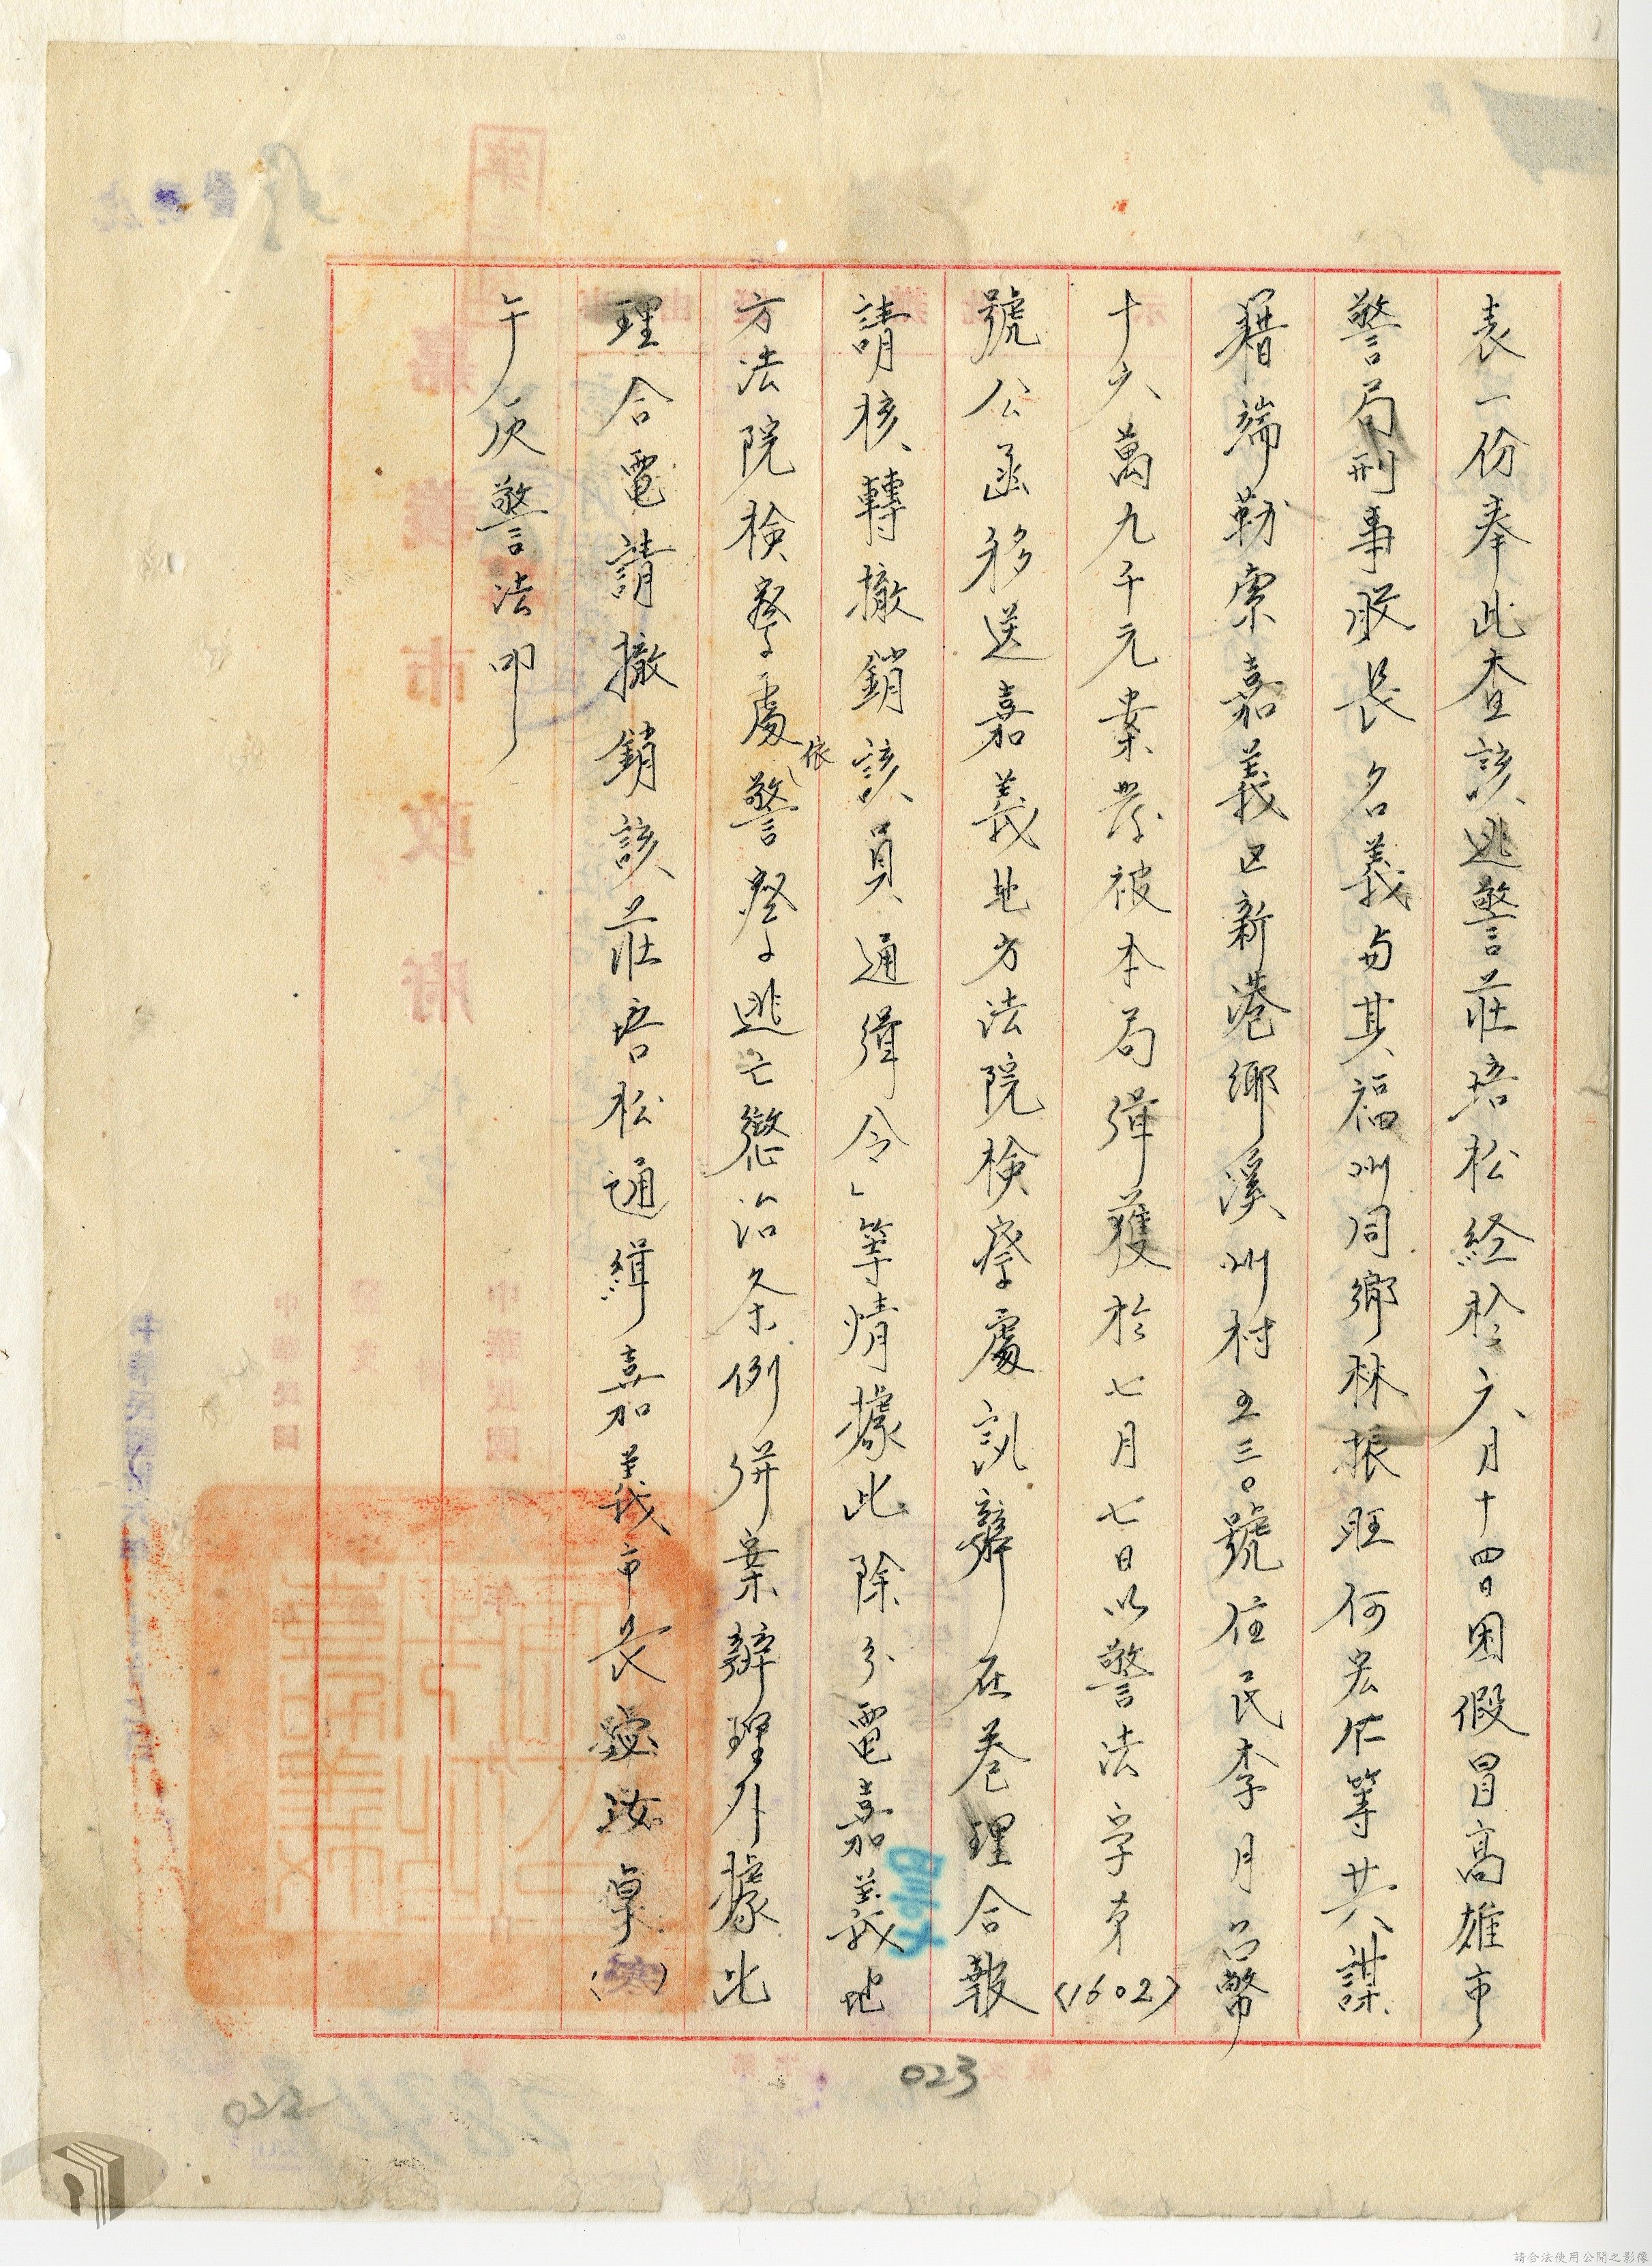 表一份奉此查該逃警莊培松經於六月十四日因假冒高雄市
警局刑事股長名義與其福州同鄉林振旺何宏仁等共謀
藉端勒索嘉義區新港鄉溪州村五三〇號住民李月呂幣
十六萬九千元案発被本局緝獲於七月七日以警法字第(1602)
號公函移送嘉義地方法院檢察處訊辦在卷理合報
請核轉撤銷該員通緝令」等情據此除分電嘉義地
方法院檢察處依警察逃亡懲治条例併案辦理外據此
理合電請撤銷該莊培松通緝嘉義市長宓汝卓()
午庚警法叩
023
022
請合法使用公開之影像